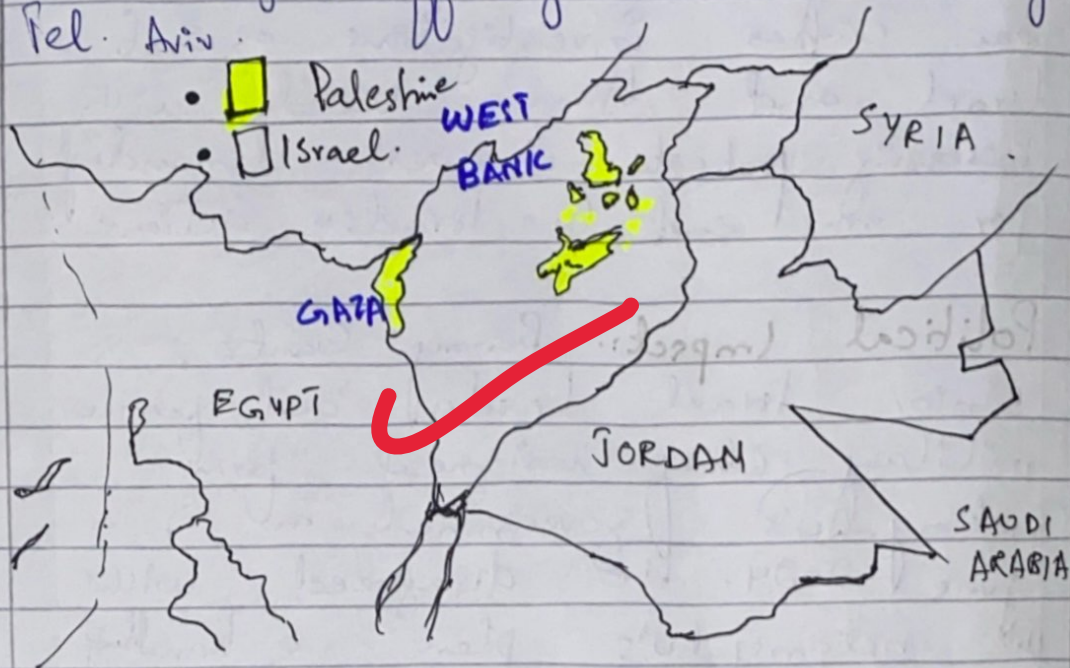 Tel. Aviv.
Palestine
Israel.
WEST
BANK
SYRIA.
GAZA
EGYPT
JORDAN
SAUDI
ARABIA